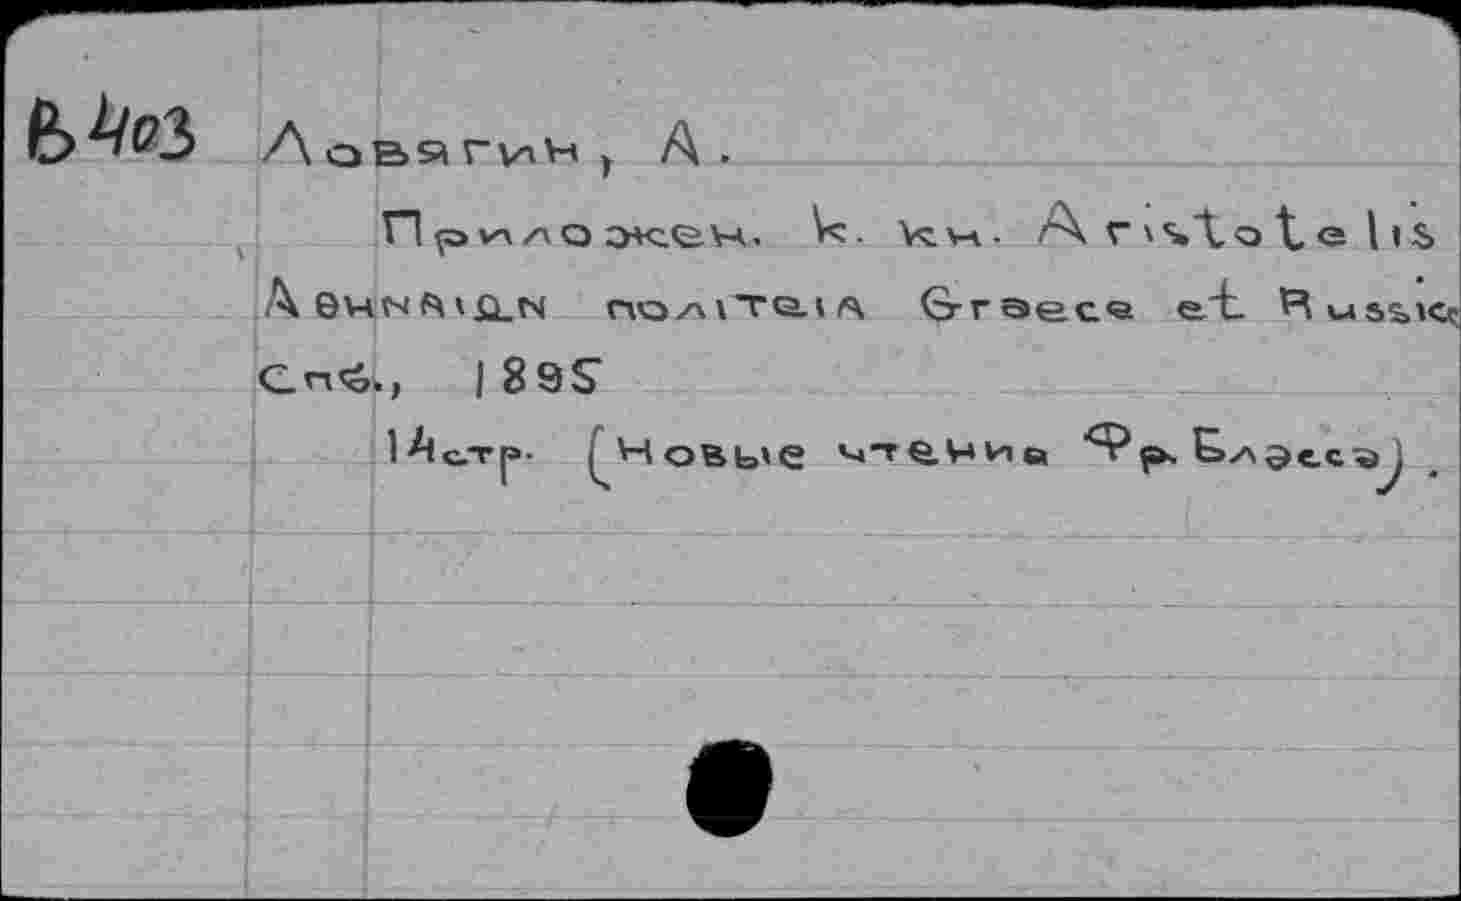 В403 Ловягин, А.
Приложен. к. кн. Aristotelis
Аѳнnаιωn πολιτειа Graece et Russice
Спб., 1895
14стр. (Новые чтения Фр. Блэсса).